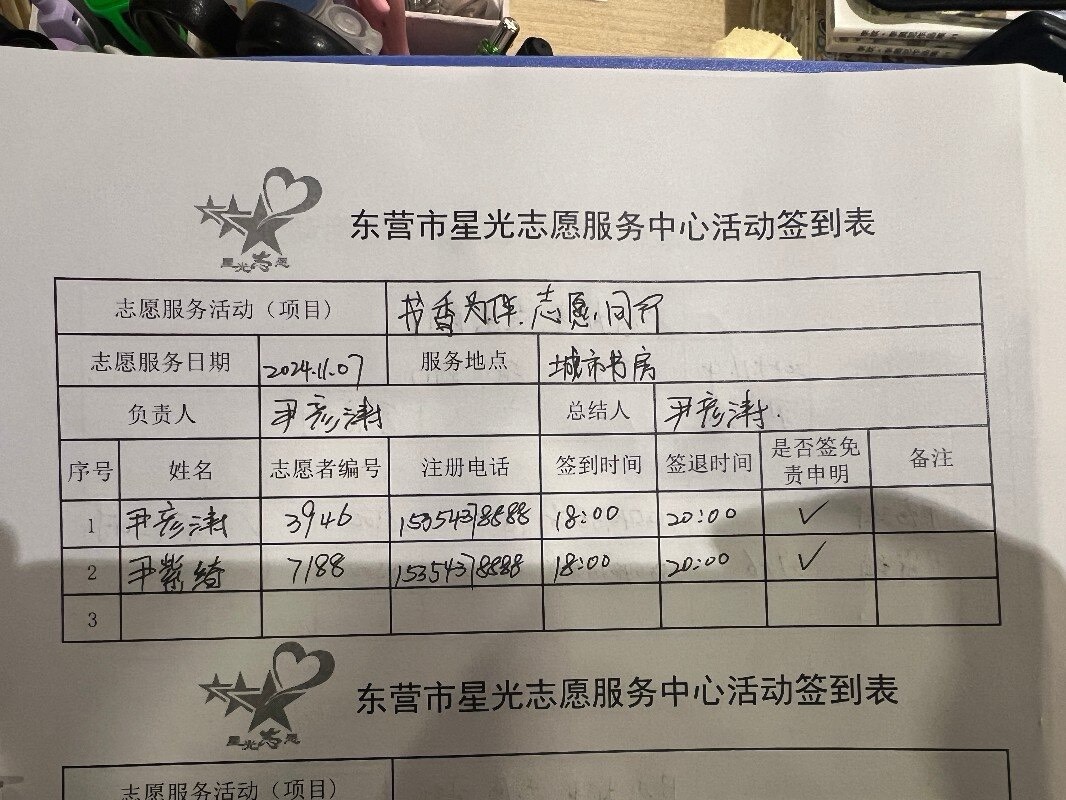 星光志愿
东营市星光志愿服务中心活动签到表
志愿服务活动（项目） 书香为伴.志愿.同行
志愿服务日期 2024.11.07 服务地点 城市书房
负责人 尹彦涛 总结人 尹彦涛.
序号 姓名 志愿者编号 注册电话 签到时间 签退时间 是否签免责申明 备注
1 尹彦涛 3946 15354378888 18:00 20:00 ✓
2 尹紫绮 7188 15354378888 18:00 20:00 ✓
3
星光志愿
东营市星光志愿服务中心活动签到表
志愿服务活动（项目）